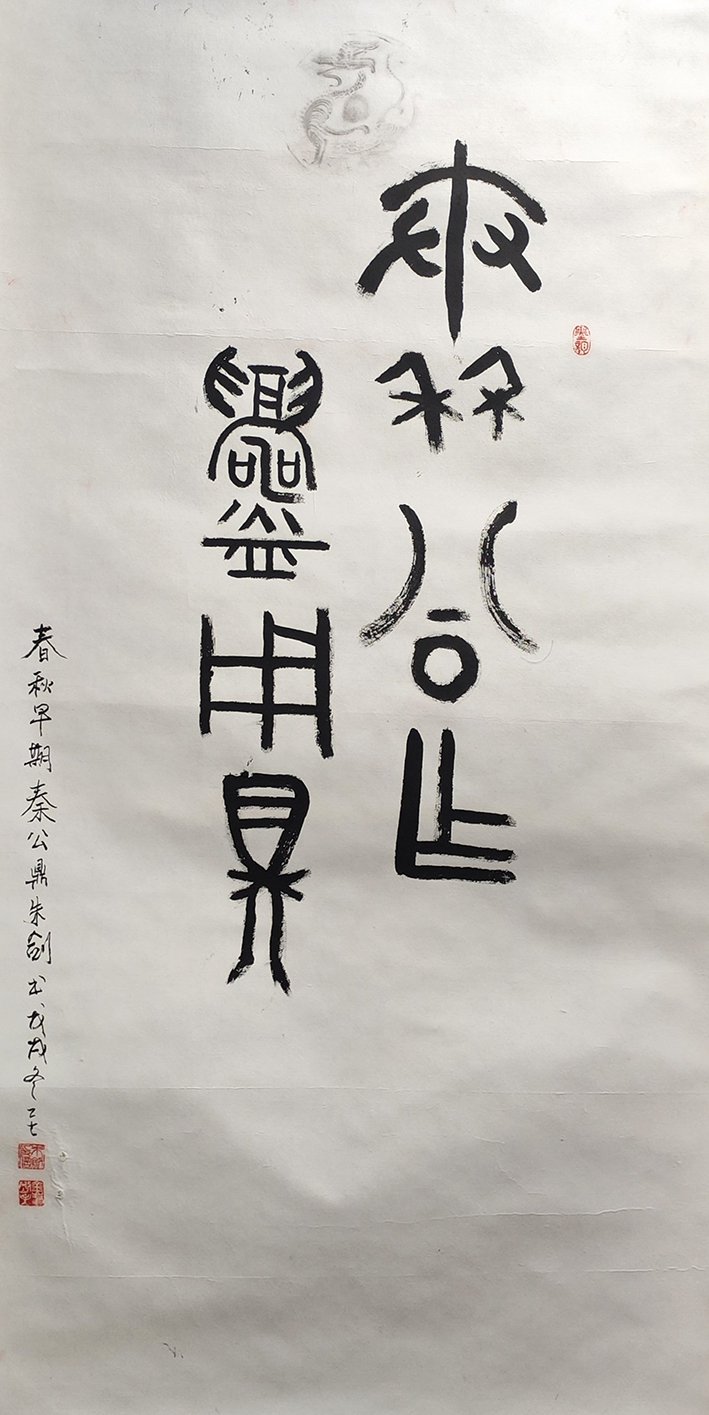 秦公作
鑄用鼎
春秋早期秦公鼎朱剑书戊戌冬至